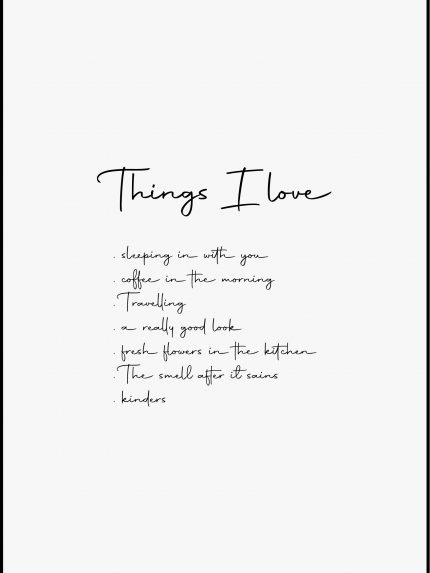 Things I love
. sleeping in with you
. coffee in the morning
. Travelling
. a really good look
. fresh flowers in the kitchen
. The smell after it sains
. kinders